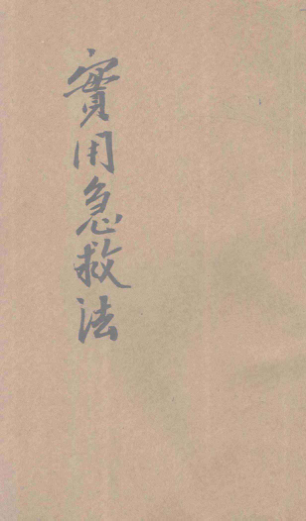 實用急救法